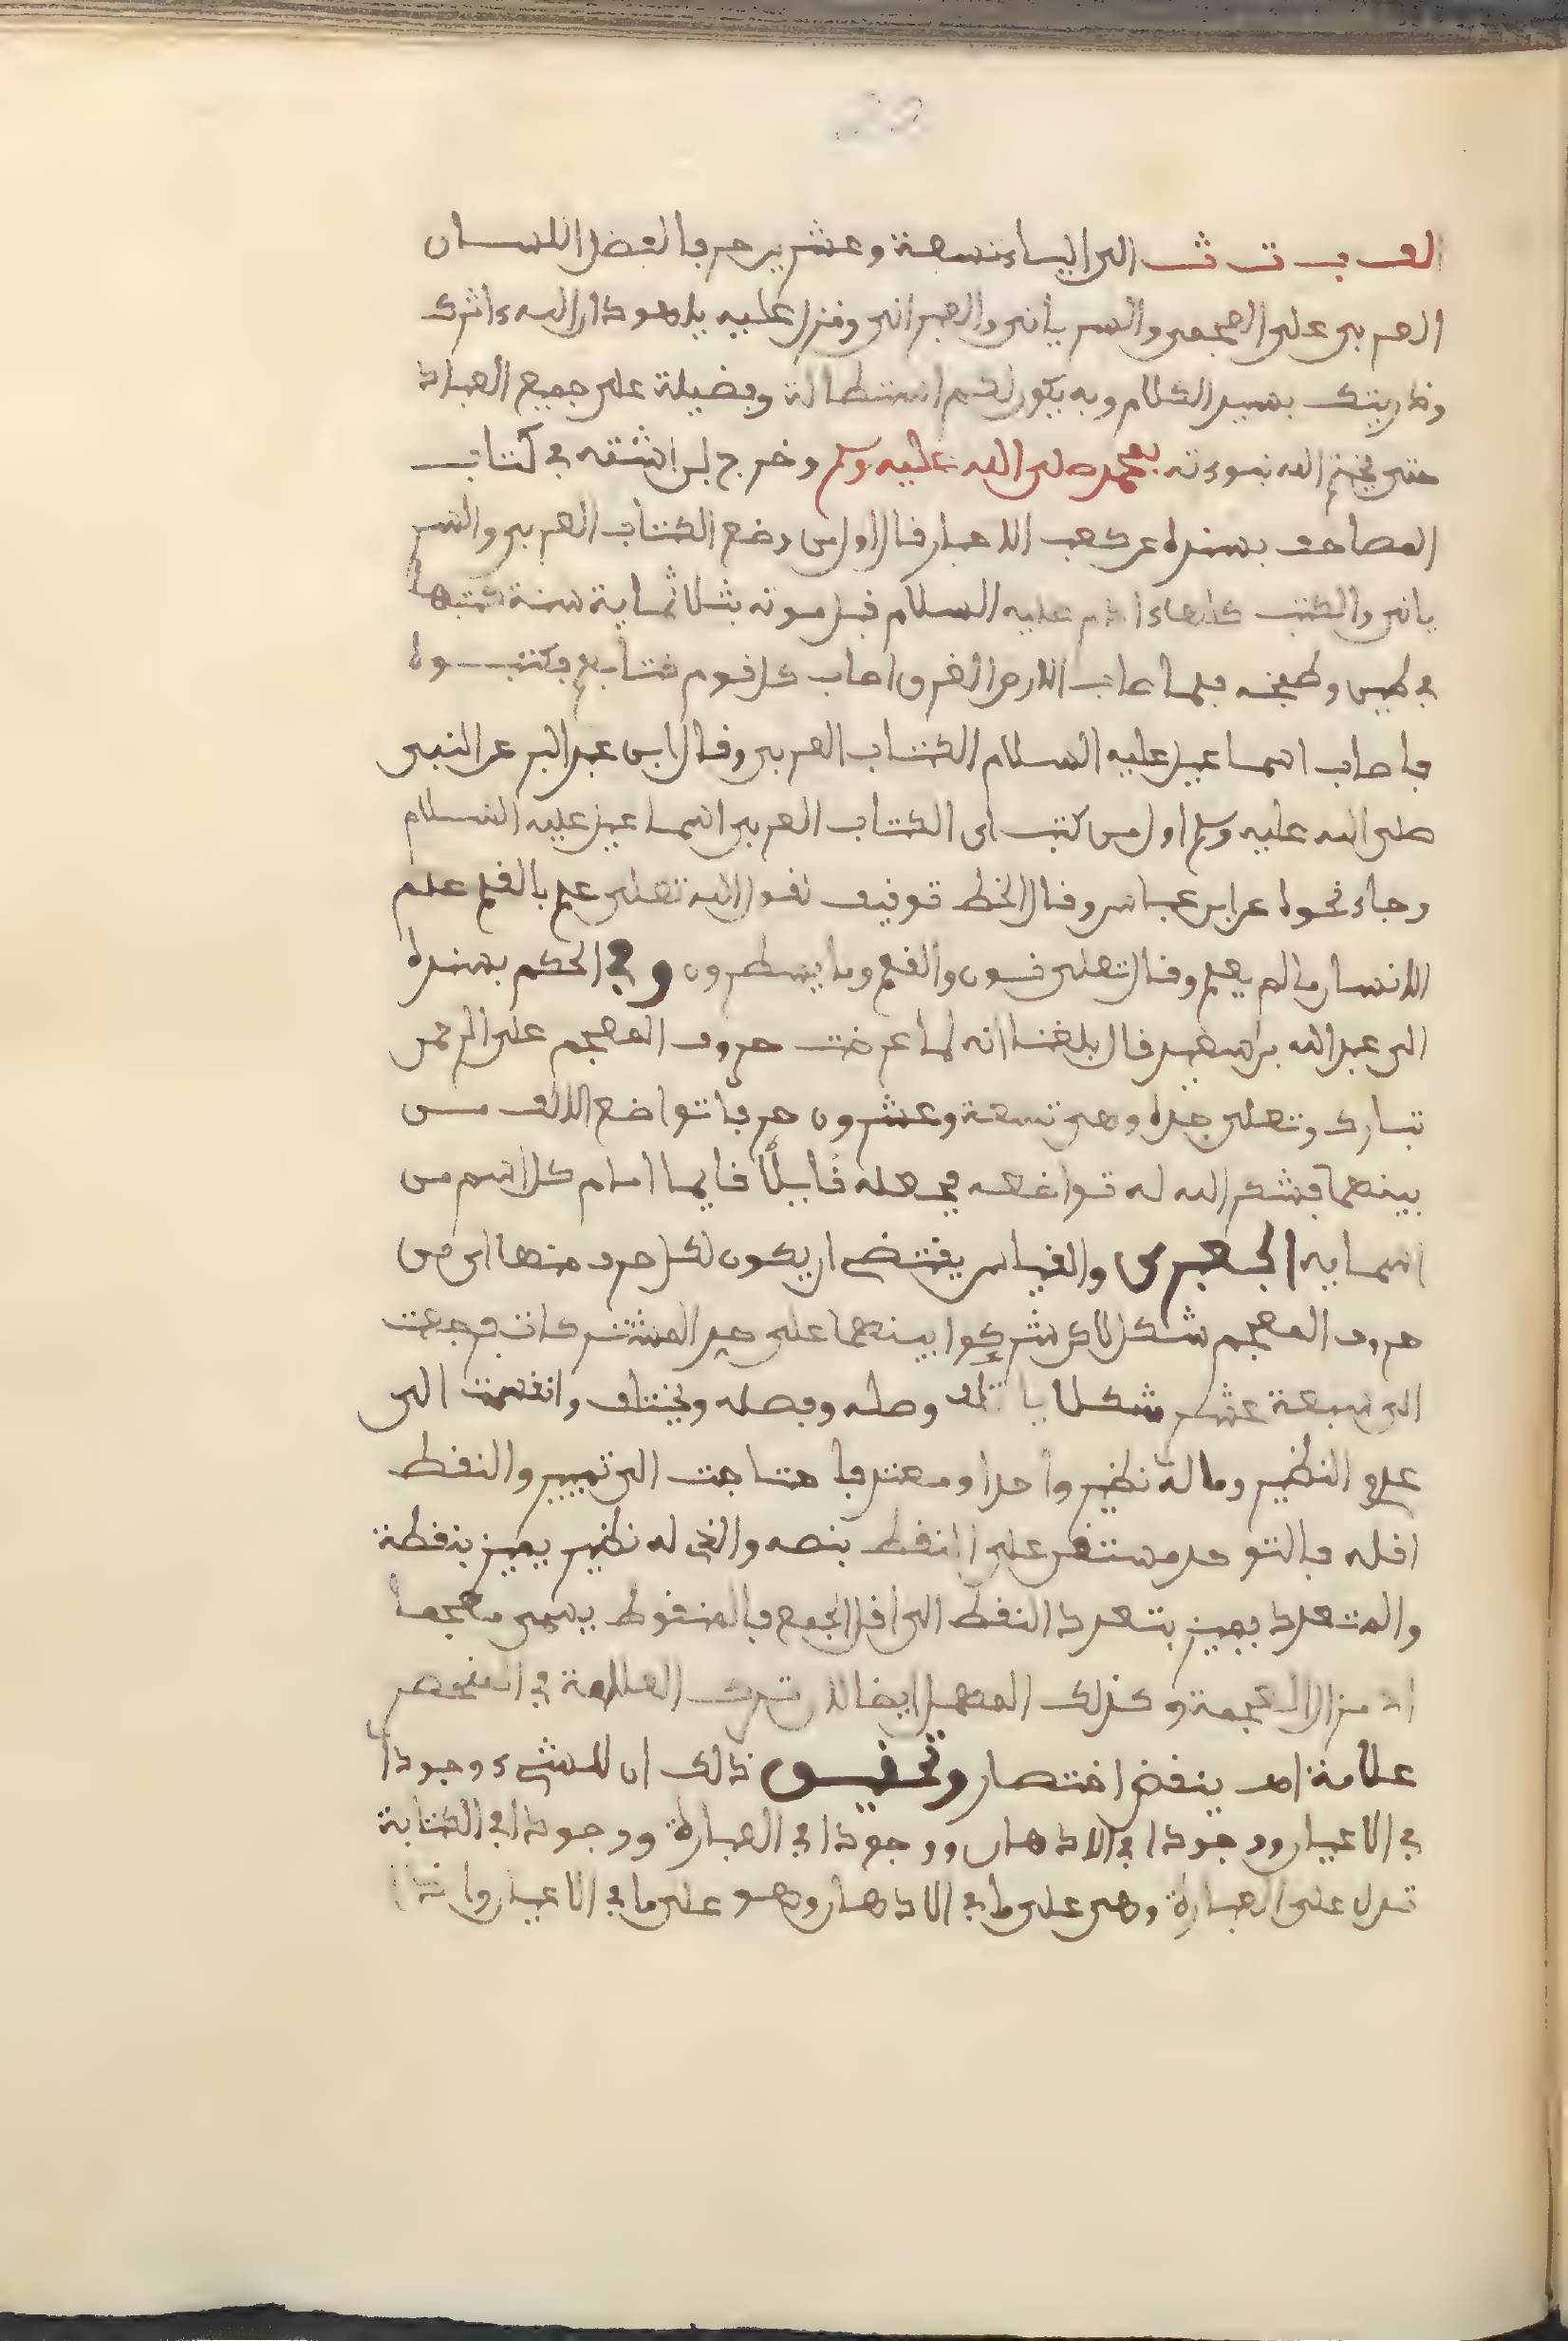 الف ب ت ث الى الياء تسعة وعشرين حرفا لفضل اللسان
العربي على العجمي والسريانى والعبرانى ونزل عليه يا هود ان الله ءاثرك
وذريتك بسيد الكلام وبه يكون لكم استطالة وفضيلة على جميع العباد
حتى يختم الله نبوءته بمحمد صلى الله عليه وسلم وخرج ابن اشته في كتاب
المصاحف بسنده عن كعب الاحبار قال اول من وضع الكتاب العربي والسر
يانى والكتب كلها ءادم عليه السلام قبل موته بثلاثماية سنة كتبها
في طين وطبخه فلما اصاب الارض الغرق اصاب كل قوم كتابهم فكتبوه
فاصاب اسماعيل عليه السلام الكتاب العربي وقال ابن عبد البر عن النبي
صلى الله عليه وسلم اول من كتب اى الكتاب العربي اسماعيل عليه السلام
وجاء نحوه عن ابن عباس وقال الخط توقيف لقول الله تعلى علم بالقلم علم
الانسان ما لم يعلم وقال تعلى ن والقلم وما يسطرون وفي المحكم بسنده
الى عبد الله بن سعيد قال بلغنا انه لما عرضت حروف المعجم على الرحمن
تبارك وتعلى جده وهى تسعة وعشرون حرفا تواضع الالف من
بينهما فشكر الله له تواضعه فجعله قايما امام كل اسم من
اسمايه الجعبرى والقياس يقتضى ان يكون لكل حرف منها اى من
حروف المعجم شكل لاكن شركوا بينهما على حد المشتركات فرجعت
الى سبعة عشر شكلا يا تلف وصله وفصله ويختلف وانقسمت الى
عديم النظير وما له نظير واحدا ومتعدد فاحتاجت الى تمييز والنقط
اقله فالمتوحد مستغن على النقط بنصه والذى له نظير يميز بنقطة
والمتعدد يميز بتعدد النقط الى اقل الجمع فالمنقوط يسمى معجما
اذ مزال العجمة وكذلك المهمل ايضا لان ترك العلامة في المنحصر
علامة اهـ ينقض اختصار وتحقيق ذلك ان للشىء وجودا
في الاعيان ووجودا في الاذهان ووجودا في العبارة ووجودا في الكتابة
تدل على العبارة وهى على ما في الاذهان وهو على ما في الاعيان وانما